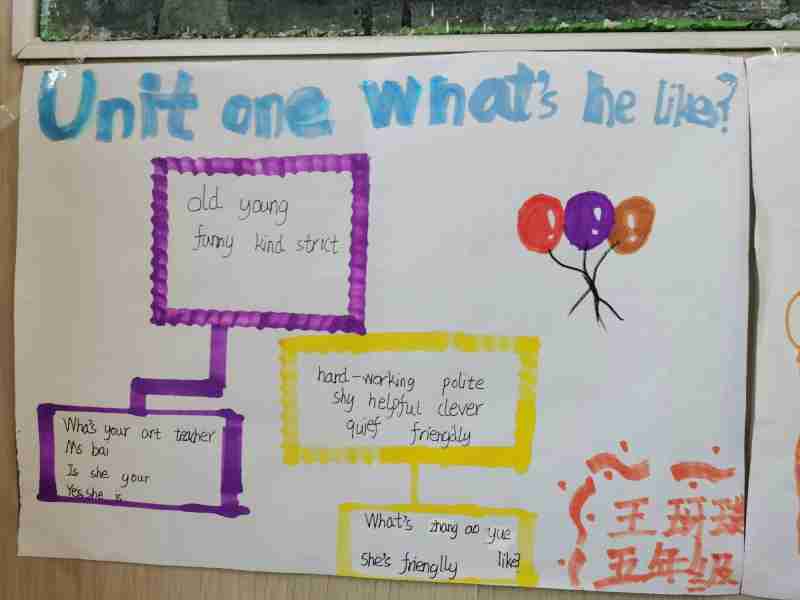 Unit one what's he likes?
old young
funny kind strict
hard-working polite
shy helpful clever
quief friengdly
Wha's your art teacher
Ms bai
Is she your
Yes.she is
What's zhang ao yue
she's frienglly like?
王
五年级